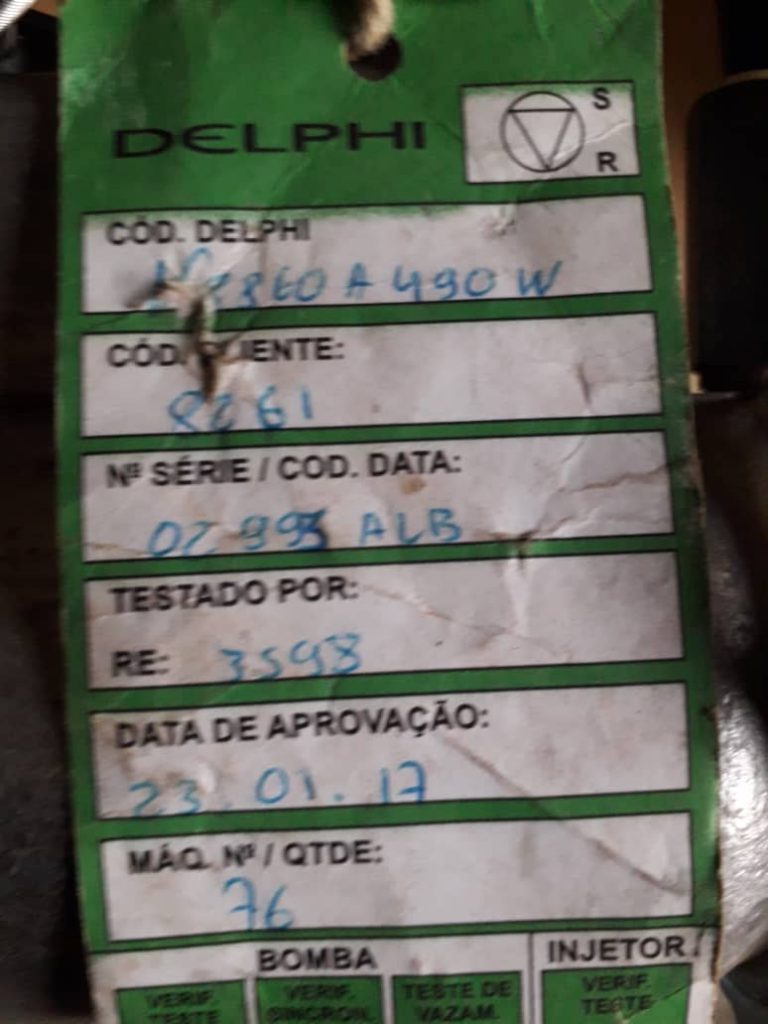 DELPHI
S
R
CÓD. DELPHI
8860 A 490 W
CÓD. CLIENTE:
8261
Nº SÉRIE / COD. DATA:
ALB
TESTADO POR:
RE: 3598
DATA DE APROVAÇÃO:
23.01.17
MÁQ. Nº / QTDE:
76
BOMBA
INJETOR
VERIF. TESTE
VERIF. SINCRON.
TESTE DE VAZAM.
VERIF. TESTE